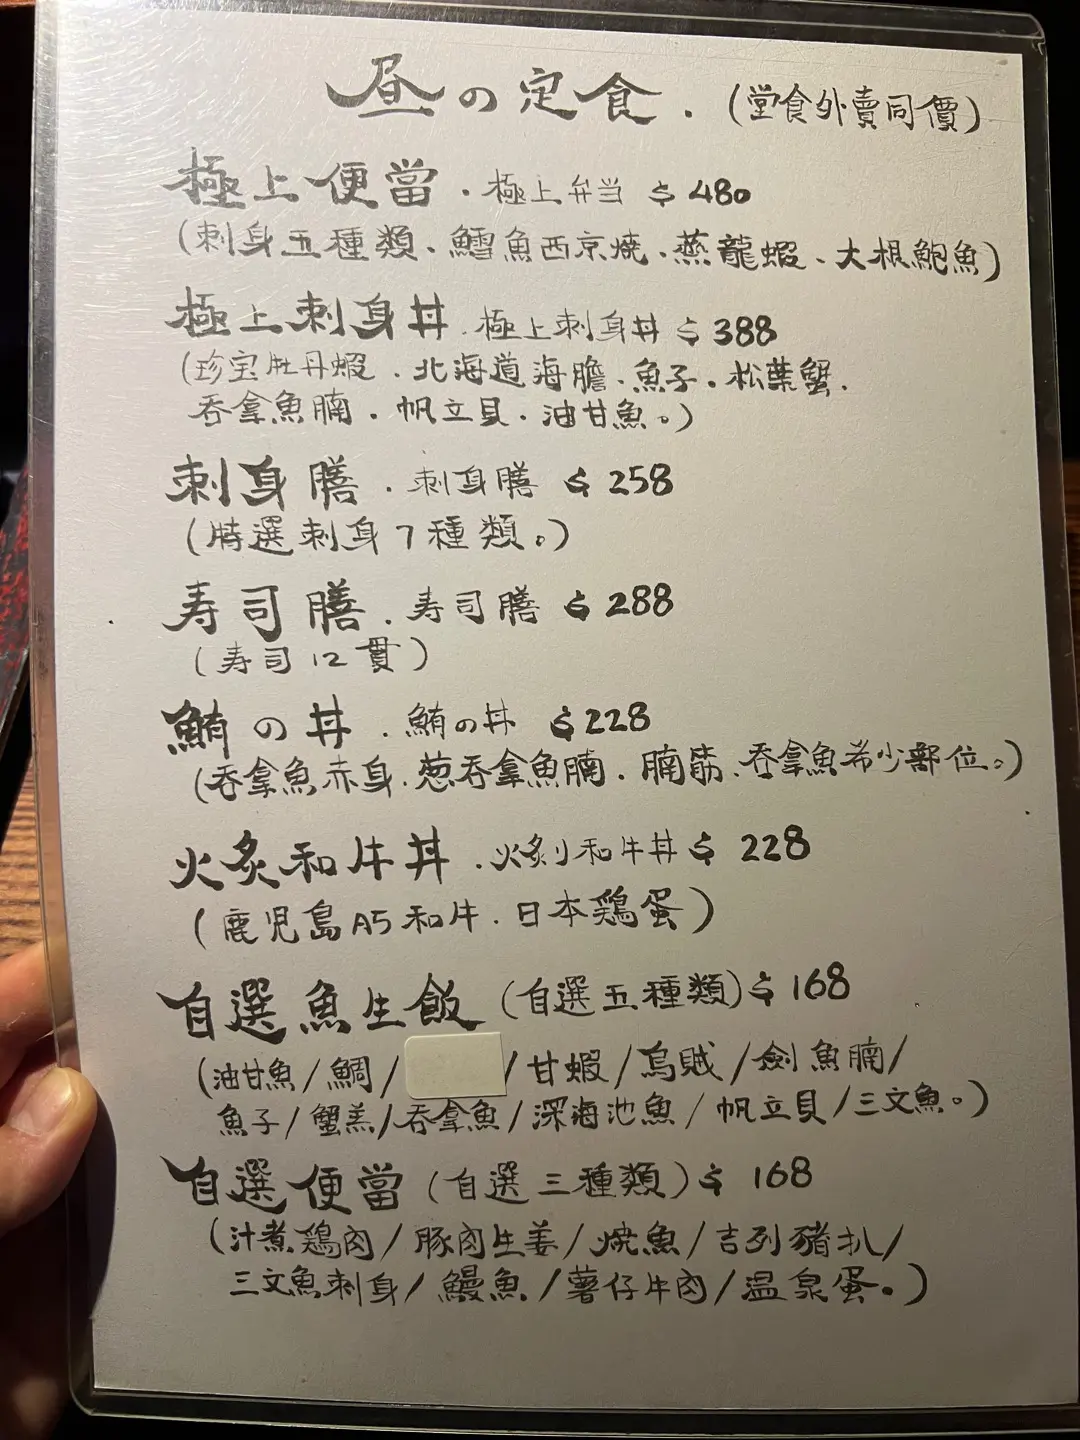 昼の定食.(堂食外賣同價)
極上便當.極上弁当 $480
(刺身五種類、鱈魚西京燒、蒸龍蝦、大根鮑魚)
極上刺身丼.極上刺身丼 $388
(珍宝牡丹蝦.北海道海膽.魚子.松葉蟹.
吞拿魚腩.帆立貝.油甘魚。)
刺身膳.刺身膳 $258
(特選刺身7種類。)
寿司膳.寿司膳 $288
(寿司12貫)
鮪の丼.鮪の丼 $228
(吞拿魚赤身.葱吞拿魚腩.腩筋.吞拿魚希少部位。)
火炙和牛丼.火炙り和牛丼 $228
(鹿児島A5和牛.日本鶏蛋)
自選魚生飯(自選五種類)$168
(油甘魚/鯛/ /甘蝦/烏賊/劍魚腩/
魚子/蟹羔/吞拿魚/深海池魚/帆立貝/三文魚。)
自選便當(自選三種類)$168
(汁煮鶏肉/豚肉生姜/焼魚/吉列豬扒/
三文魚刺身/鰻魚/薯仔牛肉/温泉蛋。)